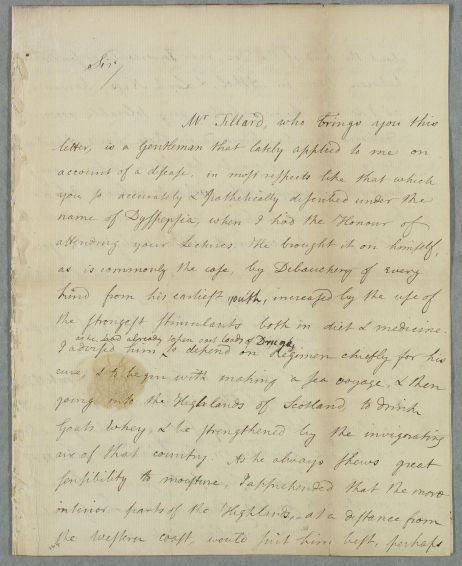 Sir/
Mr Tillard, who brings you this
letter, is a Gentleman that lately applied to me on
account of a disease, in most respects like that which
you so accurately & Pathetically described under the
name of Dyspepsia, when I had the Honour of
attending your Lectures. He brought it on himself,
as is commonly the case, by Debauchery of every
kind from his earliest youth, increased by the use of
the strongest stimulants both in diet & medicine.
as he had already taken vast loads of Drugs,
I advised him to depend on Regimen chiefly for his
cure, & to begin with making a sea voyage, & then
going into the Highlands of Scotland, to drink
Goats Whey, & be strengthened by the invigorating
air of that country. As he always shews great
sensibility to moisture, I apprehended that the more
interior parts of the Highlands, at a distance from
the western coast, would suit him best, perhaps